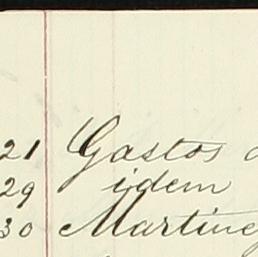 21 Gastos
29 idem
30 Martine